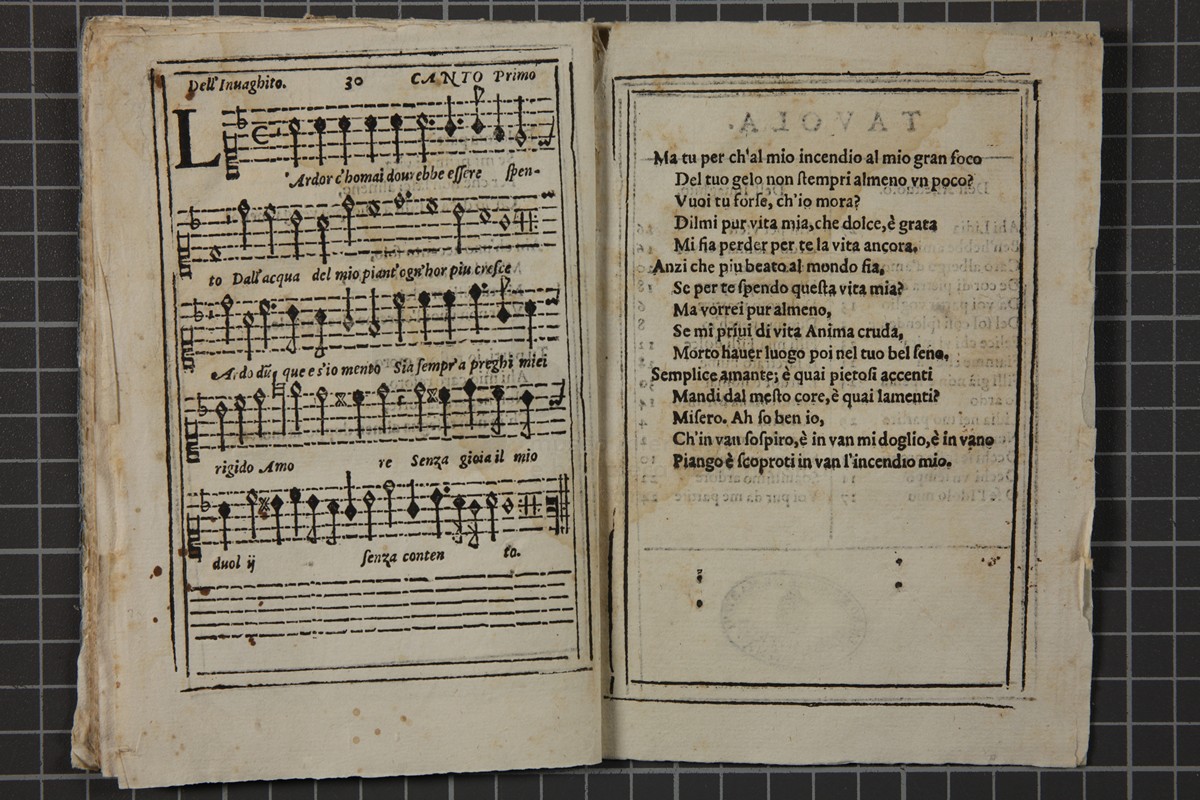 Dell'Inuaghito. 30 CANTO Primo
L'Ardor c'homai dourebbe eſſere ſpen-
to Dall'acqua del mio piant'ogn'hor piu creſce
Ardo que e s'io mento Sia ſempr'a preghi miei
rigido Amo re Senza gioia il mio
duol ij ſenza conten to.
TAVOLA.
Ma tu per ch'al mio incendio al mio gran foco
Del tuo gelo non ſtempri almeno vn poco?
Vuoi tu forſe, ch'io mora?
Dilmi pur vita mia, che dolce, è grata
Mi fia perder per te la vita ancora.
Anzi che piu beato al mondo fia,
Se per te ſpendo queſta vita mia?
Ma vorrei pur almeno,
Se mi priui di vita Anima cruda,
Morto hauer luogo poi nel tuo bel ſeno.
Semplice amante; è quai pietoſi accenti
Mandi dal meſto core, è quai lamenti?
Miſero. Ah ſo ben io,
Ch'in van ſoſpiro, è in van mi doglio, è in vano
Piango è ſcoproti in van l'incendio mio.